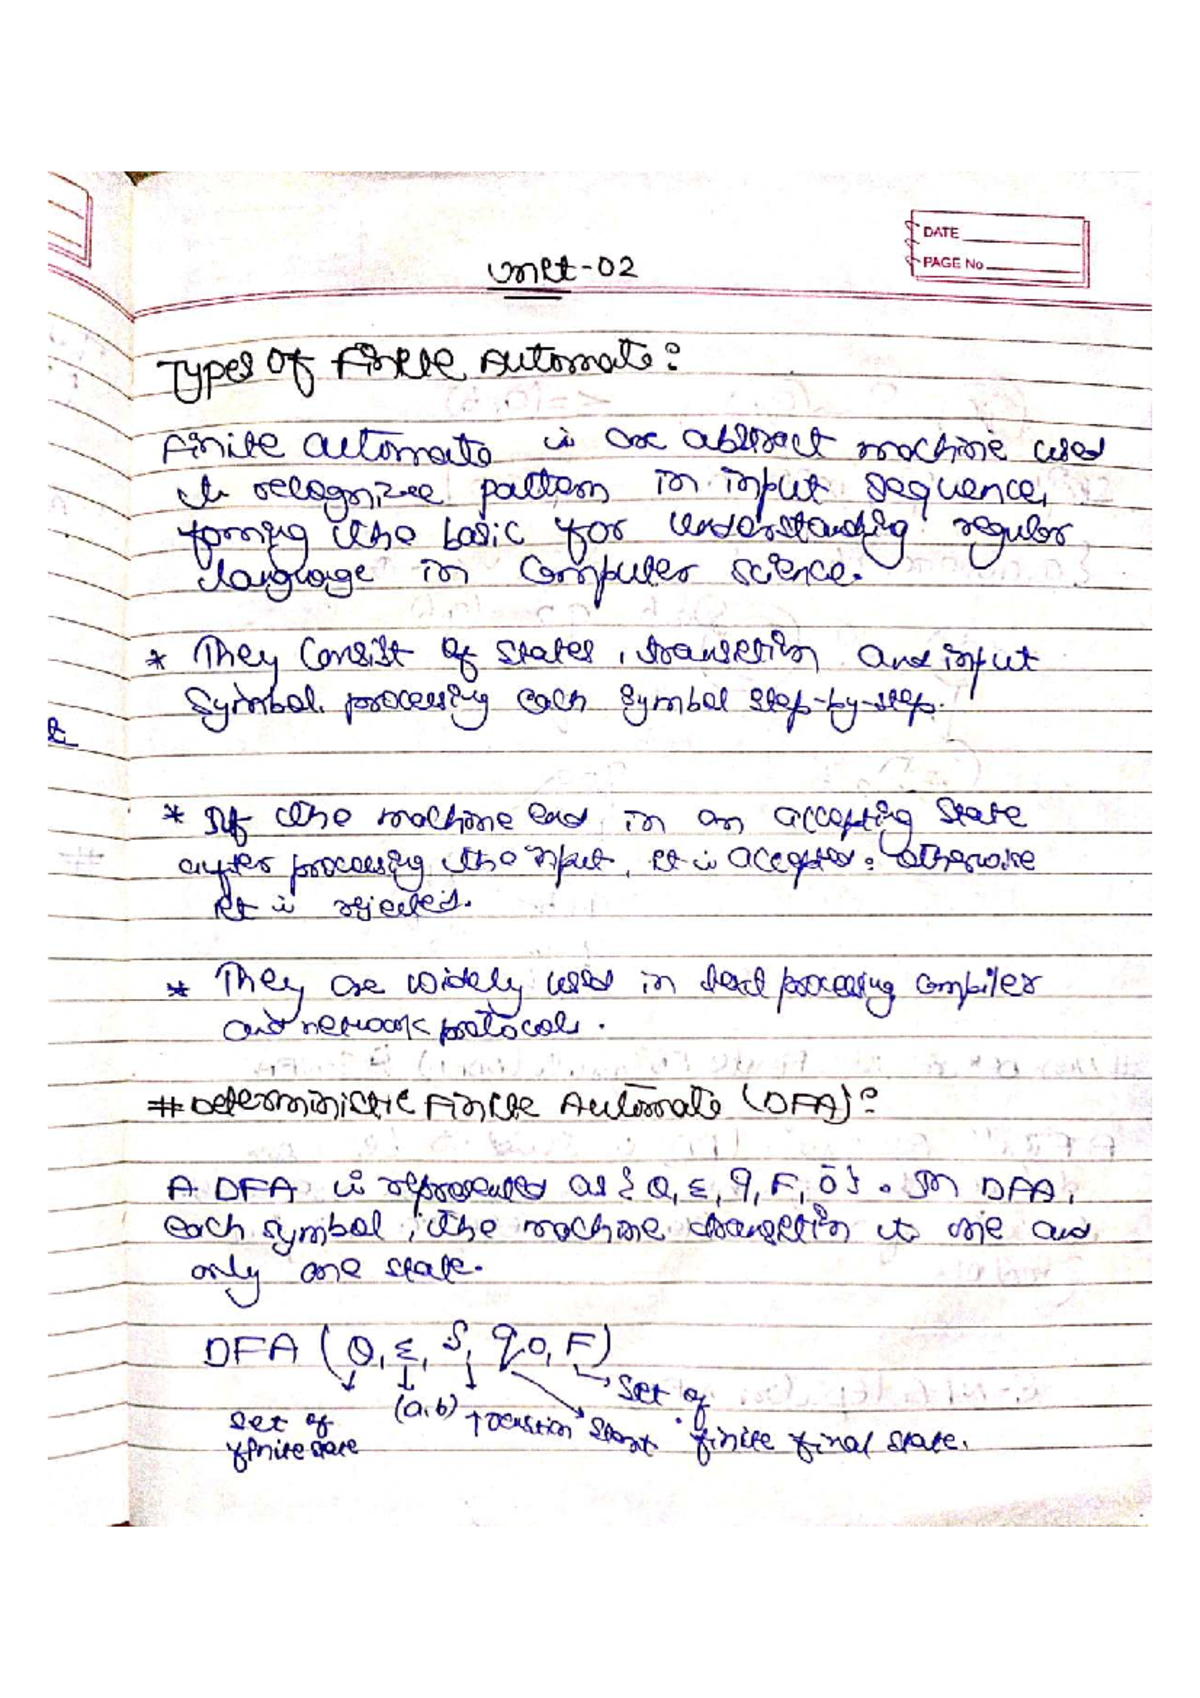 DATE
PAGE No
Unit-02
Types of Finite Automata?
Finite automata is an abstract machine used
to recognize pattern in input sequence,
forming the basic for understanding regular
language in Computer science.
* They Consist of states, transition and input
Symbol. processing each symbol step-by-step.
* If the machine end in an accepting State
after processing the input, it is accepted: otherwise
it is rejected.
* They are widely used in text processing compiler
and network protocols.
# Deterministic Finite Automata (DFA)?
A DFA is represented as {Q, Σ, q, F, δ}. In DFA,
each symbol, the machine transition to one and
only one state.
DFA (Q, Σ, δ, q0, F)
Set of
finite state
(a,b)
Transition
Start
Set of
finite final state.